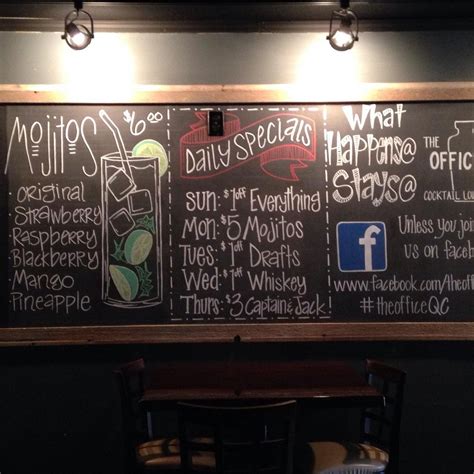 Mojitos $6.00
Original
Strawberry
Raspberry
Blackberry
Mango
Pineapple
Daily Specials
Sun: $1off Everything
Mon: $5 Mojitos
Tues: $1off Drafts
Wed: $1off Whiskey
Thurs: $3 Captain & Jack
What
Happens@
Stays@
THE
OFFIC
COCKTAIL LOU
Unless you join
us on faceb
f
www.facebook.com/theoffi
#theofficeQC